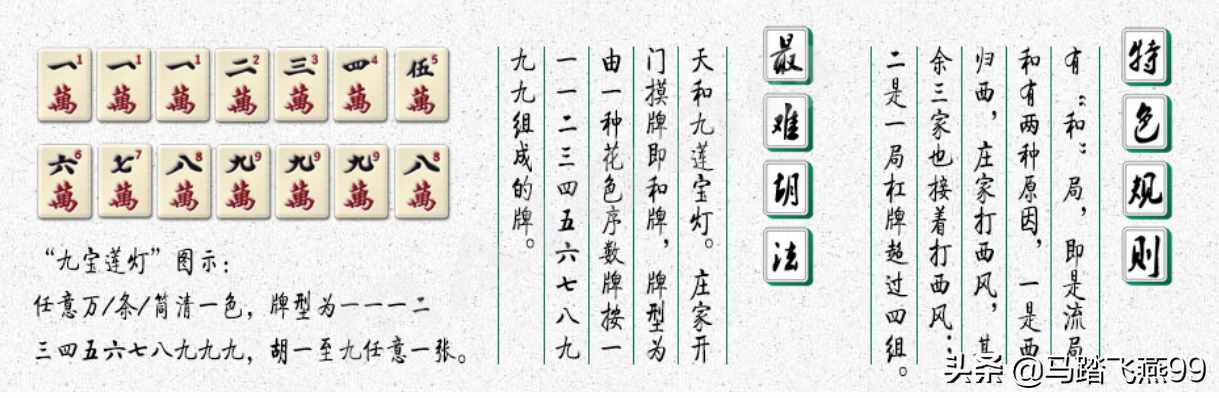 特色规则
有“和”局，即是流局
和有两种原因，一是西
归西，庄家打西风，其
余三家也接着打西风；
二是一局杠牌超过四组。
最难胡法
天和九莲宝灯。庄家开
门摸牌即和牌，牌型为
由一种花色序数牌按一
一一二三四五六七八九
九九组成的牌。
一1 一1 一1 二2 三3 四4 伍5
萬 萬 萬 萬 萬 萬 萬
六6 七7 八8 九9 九9 九9 八8
萬 萬 萬 萬 萬 萬 萬
“九宝莲灯”图示：
任意万/条/筒清一色，牌型为一一一二
三四五六七八九九九，胡一至九任意一张。
头条 @马踏飞燕99